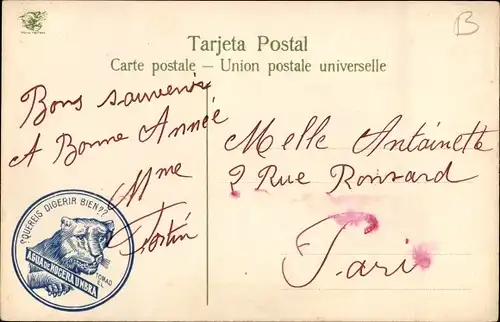 B
Tarjeta Postal
Carte postale — Union postale universelle
Bons souvenirs
A Bonne Année
Mme
Fortin
Melle Antoinette
2 Rue Ronsard
Paris
¿¿QUEREIS DIGERIR BIEN??
TOMAD EL
AGUA DE NOCERA UMBRA